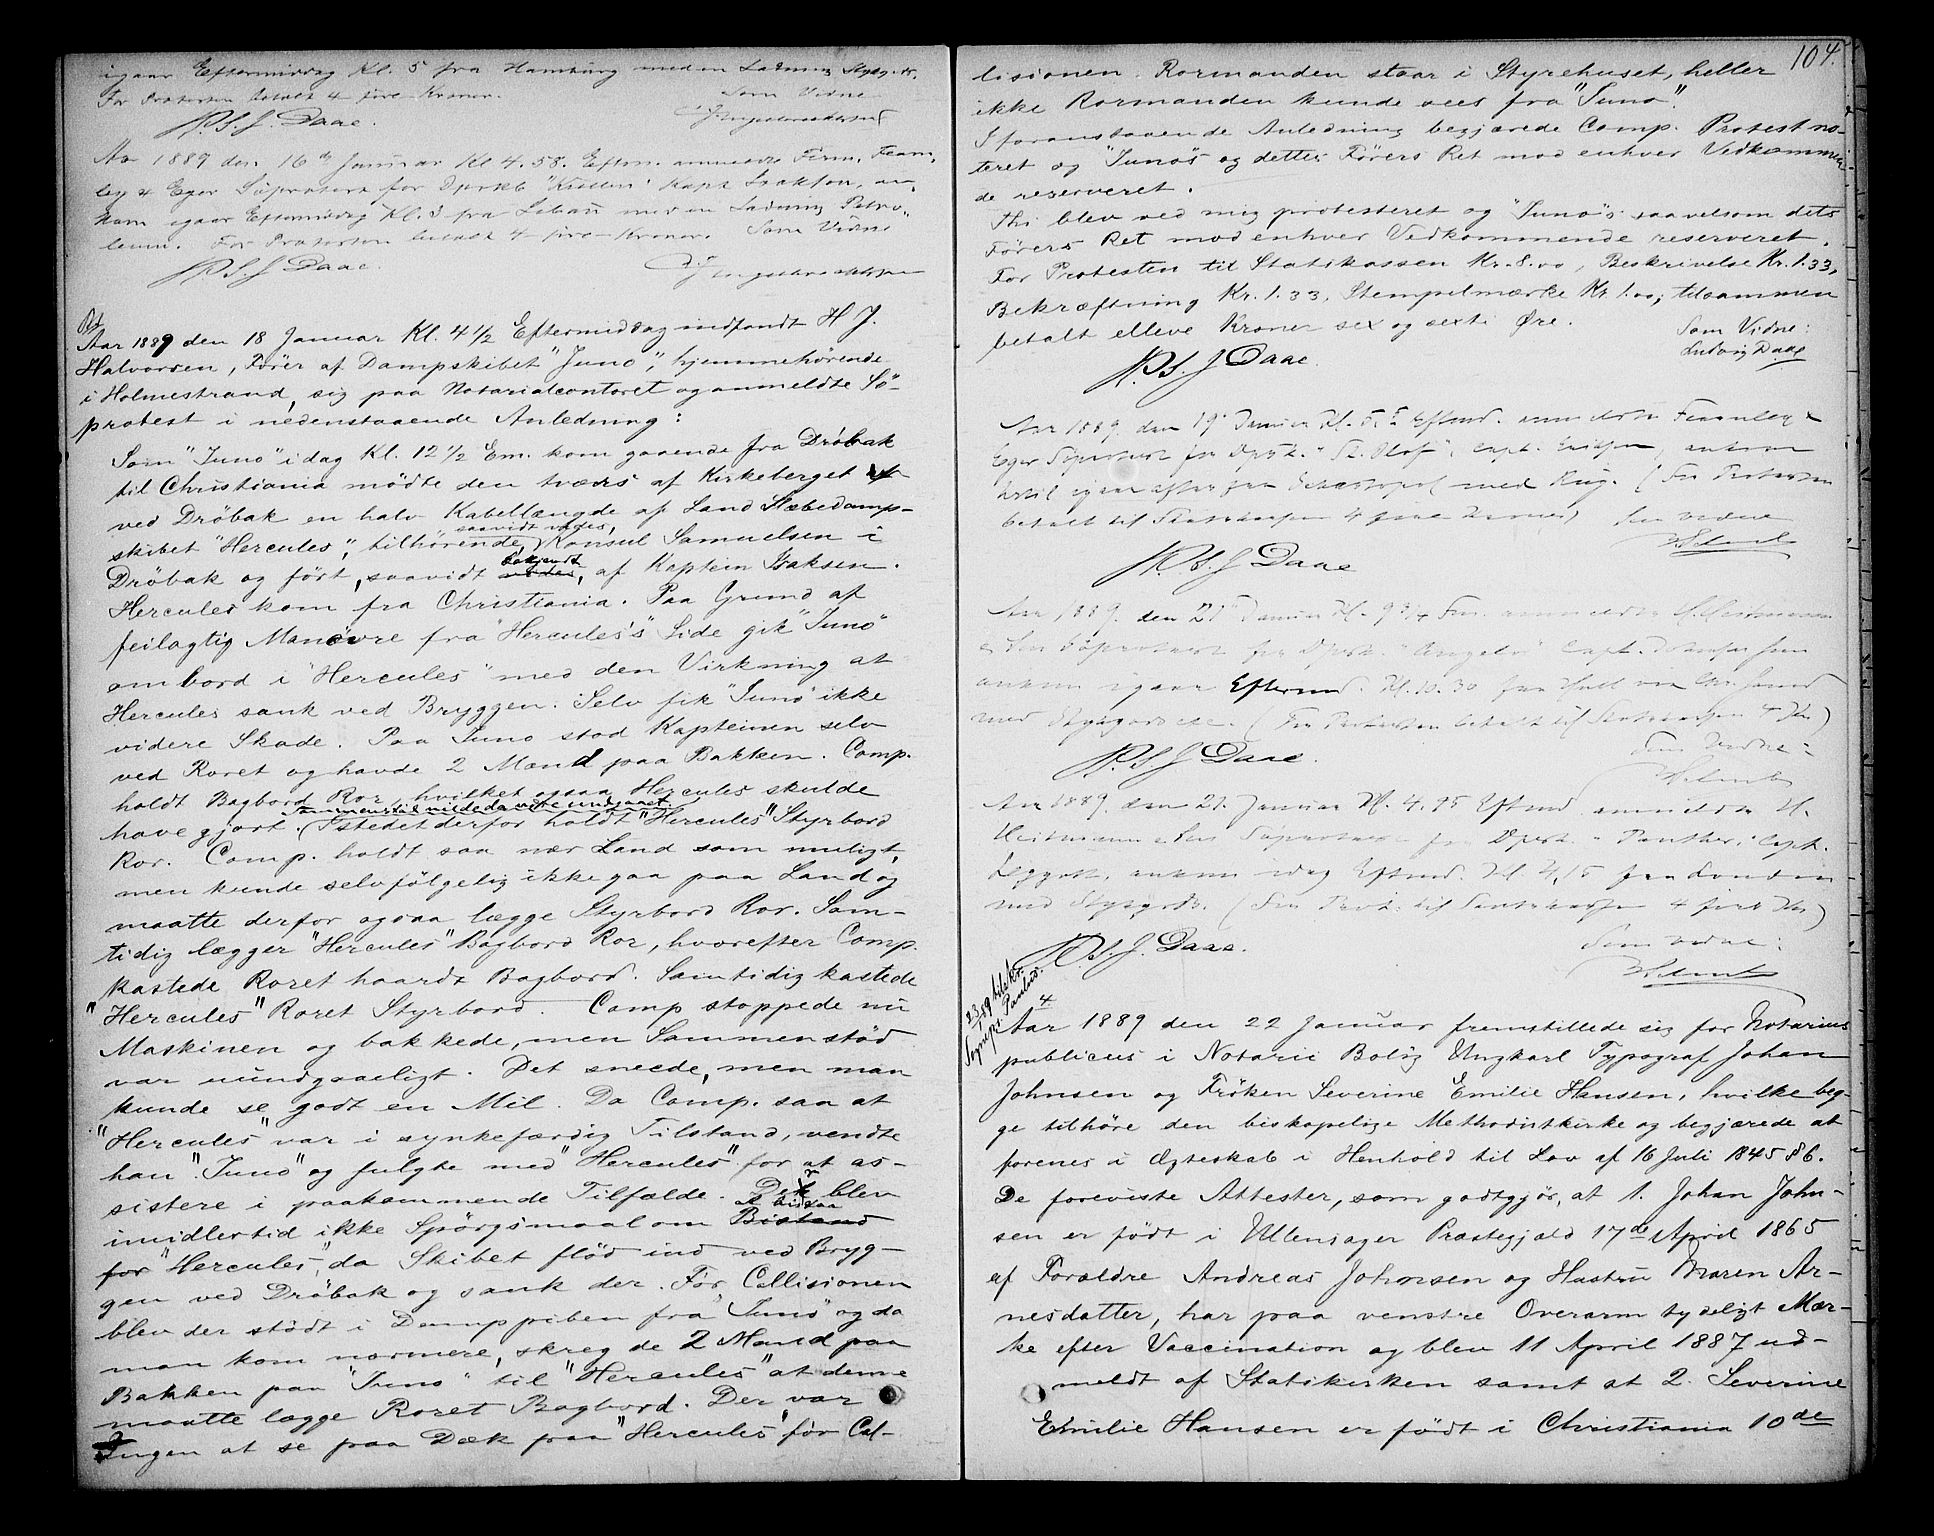 igaar Eftermiddag Kl. 5 fra Hamburg med en Ladning Stykg.
For Protesten betalt 4 fire Kroner. Som Vidne
N.S.J. Daae.
Aar 1889 den 16de Januar Kl 4.58. Efterm. anmeldte Firm. Fearn-
ley & Eger Söprotest for Dpskb "Kiellen" Kapt Isaksen, an-
kom igaar Eftermiddag Kl. 3 fra Libau med en Ladning Petro-
leum. For Protesten betalt 4 fire Kroner. Som Vidne
N.S.J Daae.
Aar 1889 den 18 Januar Kl. 4 1/2 Eftermiddag indfandt H J.
Halvorsen, Förer af Dampskibet "Juno", hjemmehörende
i Holmestrand, sig paa Notarialcontoret og anmeldte Sö-
protest i nedenstaaende Anledning:
Som "Juno" idag Kl. 12 1/2 Em. kom gaaende fra Dröbak
til Christiania mödte den tværs af Kirkeberget
ved Dröbak en halv Kabellængde af Land Slæbedamp-
saavidt vides,
skibet "Hercules", tilhörende Konsul Samuelsen i
bekjendt
Dröbak og fört, saavidt vides, af Kaptein Isaksen.
Hercules kom fra Christiania. Paa Grund af
feilagtig Manövre fra "Hercules's" Side gik "Juno"
ombord i "Hercules" med den Virkning at
Hercules sank ved Bryggen. Selv fik "Juno" ikke
videre Skade. Paa Juno stod Kapteinen selv
ved Roret og havde 2 Mand paa Bakken. Comp.
holdt Bagbord Ror, hvilket ogsaa Hercules skulde
Sammenstöd vilde da være undgaaet
have gjort. Istedetderfor holdt "Hercules" Styrbord
Ror. Comp. holdt saa nær Land som muligt,
men kunde selvfölgelig ikke gaa paa Land og
maatte derfor ogsaa lægge Styrbord Ror. Sam-
tidig lægger "Hercules" Bagbord Ror, hvorefter Comp.
kastede Roret haardt Bagbord. Samtidig kastede
"Hercules" Roret Styrbord. Comp stoppede nu
Maskinen og bakkede, men Sammenstöd
var uundgaaeligt. Det sneede, men man
kunde se godt en Mil. Da Comp. saa at
"Hercules" var i synkefærdig Tilstand, vendte
han "Juno" og fulgte med "Hercules" for at as-
sistere i paakommende Tilfælde. Der blev
at bistaa
imidlertid ikke Spörgsmaal om Bistand
for "Hercules", da Skibet flöd ind ved Bryg-
gen ved Dröbak og sank der.För Collisionen
blev der stödt i Damppiben fra "Juno" og da
man kom nærmere, skreg de 2 Mand paa
Bakken paa "Juno" til "Hercules" at denne
maatte lægge Roret Bagbord. Der var
Ingen at se paa Dæk paa "Hercules" för Col-
104.
lisionen. Rormanden staar i Styrehuset, heller
ikke Rormanden kunde sees fra "Juno".
I foranstaaende Anledning begjærede Comp. Protest no-
teret og "Juno's" og dettes Förers Ret mod enhver Vedkommen-
de reserveret.
Thi blev ved mig protesteret og "Juno's" saavelsom dets
Förers Ret mod enhver Vedkommende reserveret.
For Protesten til Statskassen Kr. 8.00, Beskrivelse Kr. 1.33,
Bekræftning Kr. 1.33, Stempelmærke Kr 1.00, tilsammen
betalt elleve Kroner sex og sexti Öre.
Som Vidne:
Ludvig Daae
N.S.J Daae.
Aar 1889 den 19 Januar Kl. 5 Eftmd. anmeldte Fearnley &
Eger Söprotest for Dpsk. "St. Olaf", Capt. Eriksen, ankom
hertil igaar aftes fra Sebastopol med Rug. (For Protesten
betalt til Statskassen 4 fire Kroner) Som Vidne
N.S.J Daae
Aar 1889. den 21 Januar Kl. 9 3/4 Fm. anmeldte H. Heitmann
& Sön Söprotest for Dpsk. "Angelo" Capt.
ankom igaar Eftermd. Kl. 10.30 fra Hull via Chr.sand
med Stykgods etc. (For Protesten betalt til Statskassen 4 Kr)
Som Vidne:
N.S.J Daae.
Aar 1889. den 21. Januar Kl. 4.45 Eftmd anmeldte H.
Heitmann & Sön Söprotest for Dpsk. "Panther" Capt.
ankom idag Eftmd. Kl 4,15 fra London
med Stykgods. (For Prot. til Statskassen 4 fire Kr)
Som Vidne:
N.S.J. Daae.
23/4 89 tilskr.
Sogneprs. Paulus.
Aar 1889 den 22 Januar fremstillede sig for Notarius
publicus i Notarii Bolig Ungkarl Typograf Johan
Johnsen og Fröken Severine Emilie Hansen, hvilke beg-
ge tilhöre den biskopelige Methodistkirke og begjærede at
forenes i Ægteskab i Henhold til Lov af 16 Juli 1845 § 6.
De foreviste Attester, som godtgjör, at 1. Johan John-
sen er födt i Ullensager Præstegjæld 17de April 1865
af Forældre Andreas Johnsen og Hustru Maren Ar-
nesdatter, har paa venstre Overarm tydeligt Mær-
ke efter Vaccination og blev 11 April 1887 ud-
meldt af Statskirken samt at 2. Severine
Emilie Hansen er födt i Christiania 10de